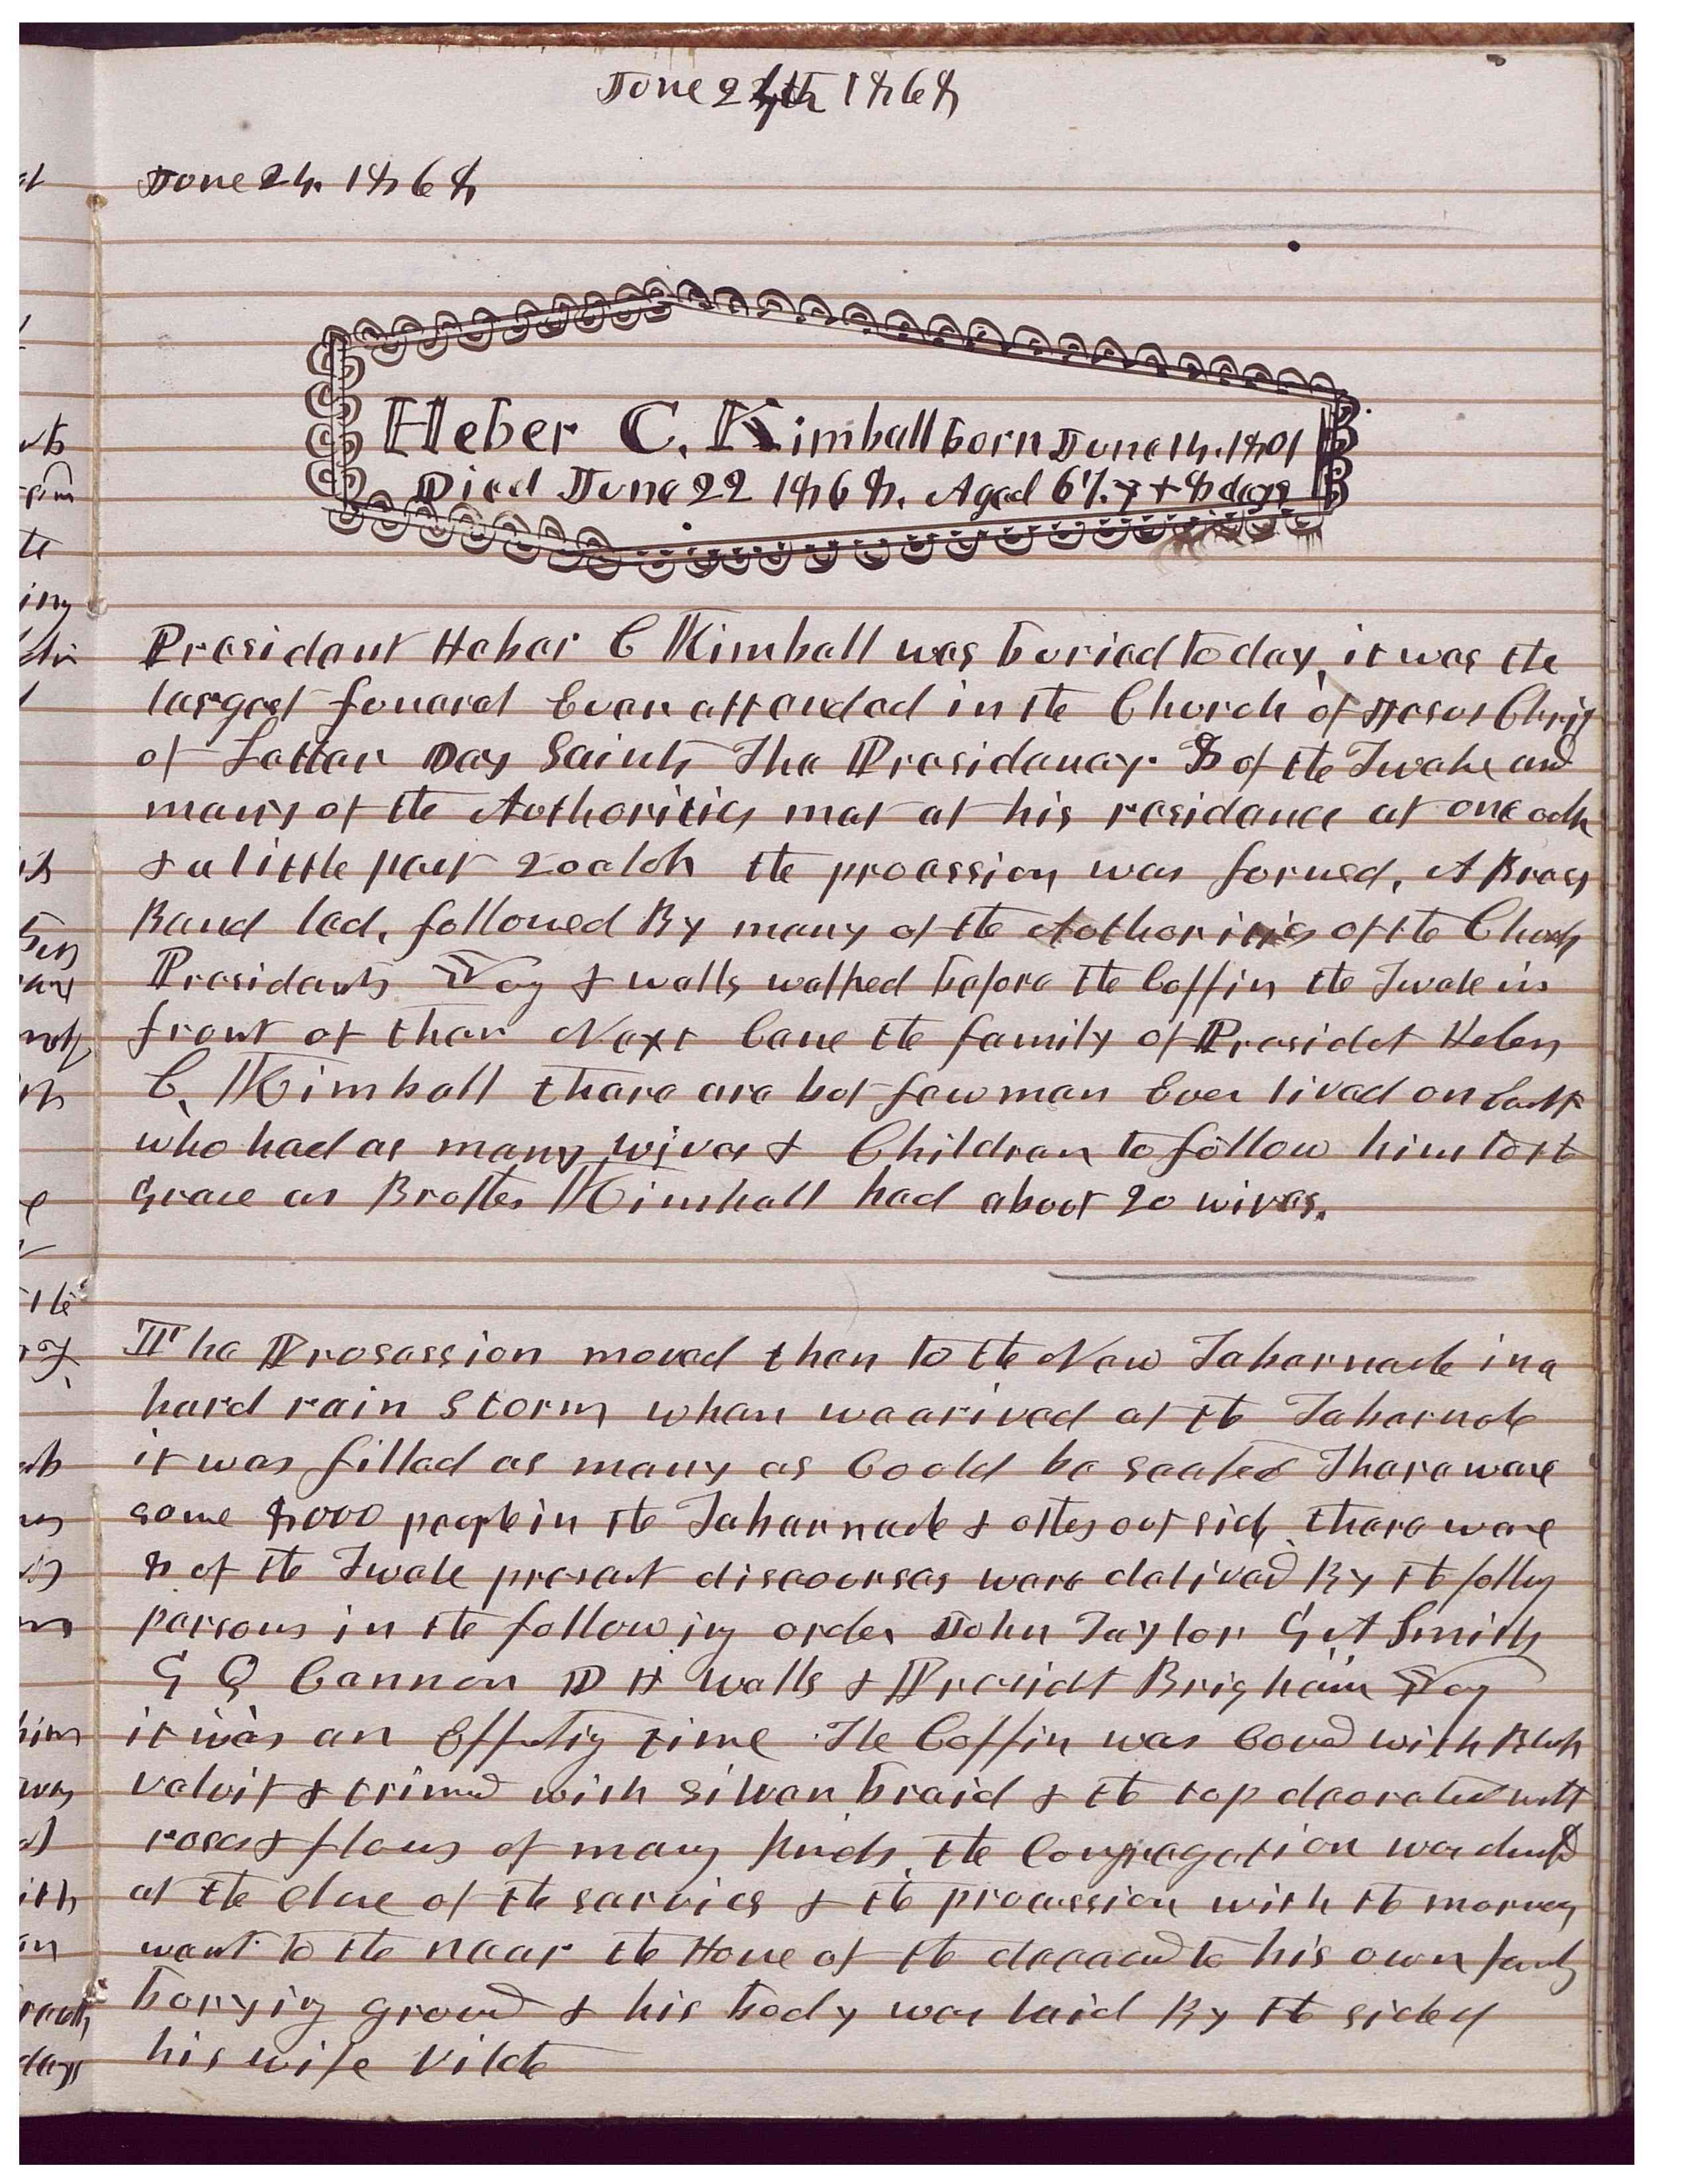 June 24th 1868
June 24. 1868
Heber C. Kimball born June 14. 1801
Died June 22 1868. Aged 67. y + 8 days
President Heber C Kimball was buried to day, it was the
largest funeral Ever attended in the Church of Jesus Christ
of Latter Day Saints The Presidency. 8 of the Twelve and
many of the Authorities met at his residence at one oclk
& a little past 2 oclok the procession was formed, A Brass
Band led, followed By many of the Authorities of the Church
Presidents Yog & wells walked before the Coffin the Twelve in
front of them Next Came the family of President Heber
C. Kimball there are but few men Ever lived on Earth
who had as many wives & Children to follow him to the
Grave as Brother Kimball had about 20 wives.
The Prosession moved then to the New Tabernacle in a
hard rain Storm when we arived at the Tabernale
it was filled as many as Could be seated There were
some 8000 people in the Tabernacle & others out side there were
8 of the Twele present discourses were delived By the follng
persons in the following order John Taylor G A Smith
G Q Cannon D H wells & Presidt Brigham Yog
it was an Effectig time The Coffin was Coved with Black
velvit & trimed with Silver braid & the top decorated with
roses & flows of many kinds, the Congregation was dismssd
at the close of the services & the procession with the morners
went to the near the House of the deceased to his own family
burying ground & his body was laid By the side of
his wife Vilate